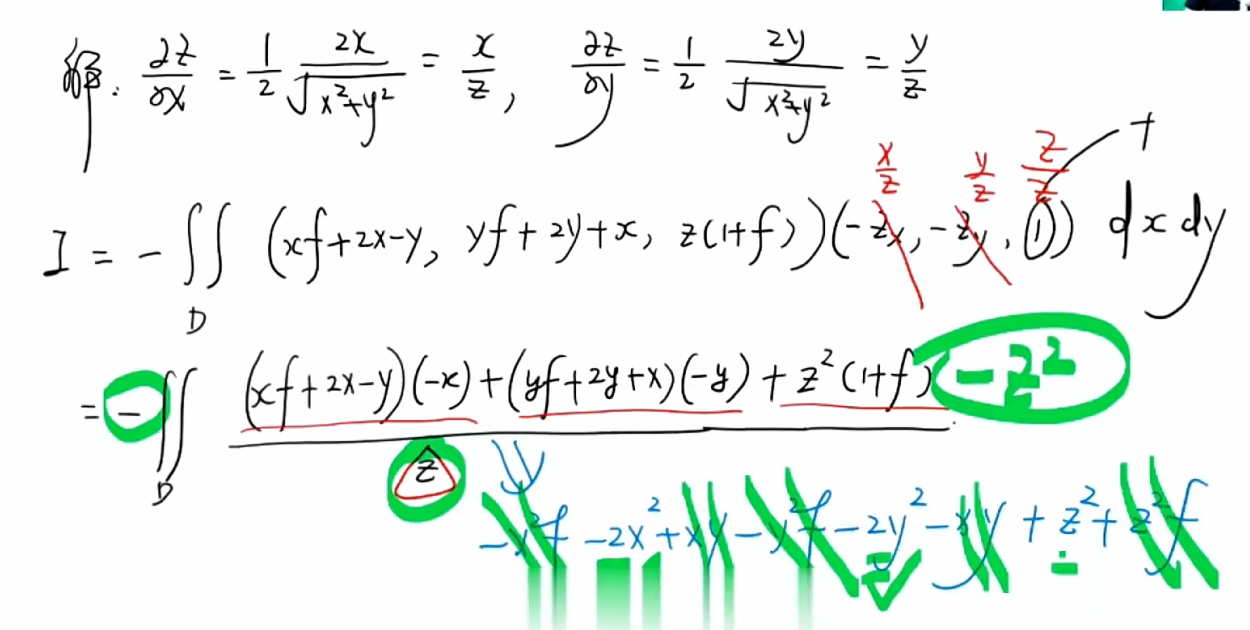 解: ∂z/∂x = 1/2 2x/√(x²+y²) = x/z, ∂z/∂y = 1/2 2y/√(x²+y²) = y/z
x/z y/z z/z +
I = - ∬_D (xf+2x-y, yf+2y+x, z(1+f))(-z_x, -z_y, 1) dxdy
= - ∬_D ((xf+2x-y)(-x)+(yf+2y+x)(-y)+z²(1+f))/z -z²
-x²f-2x²+xy-y²f-2y²-xy+z²+z²f